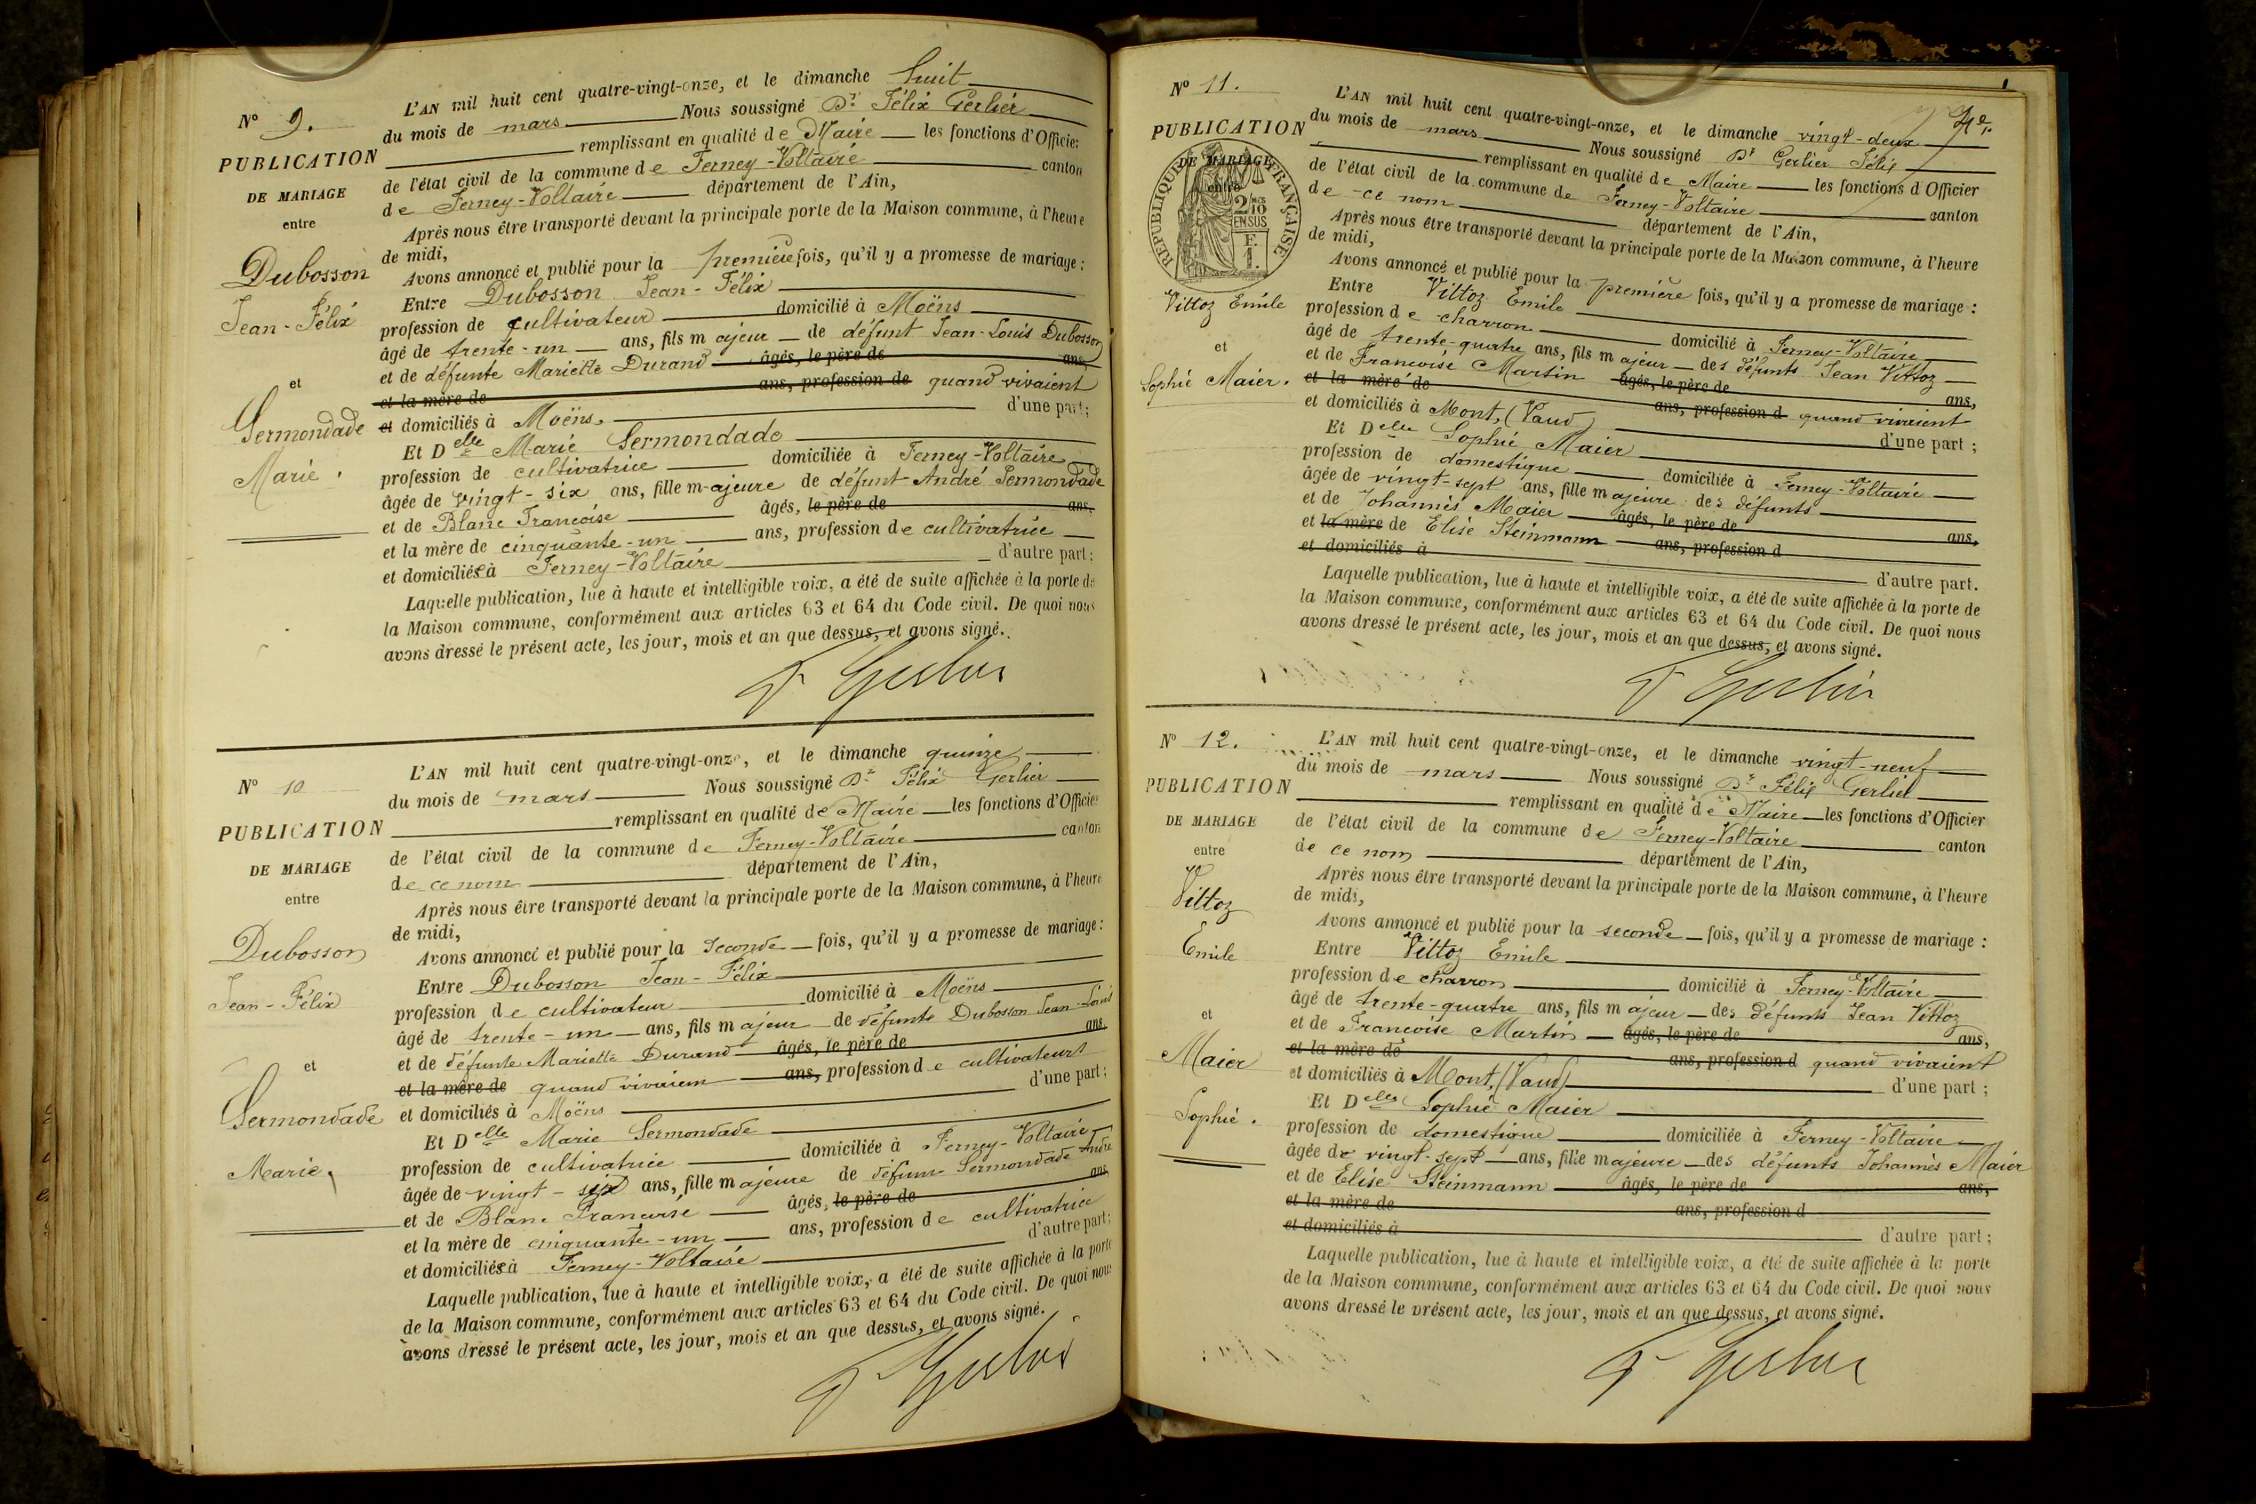 N° 9.
PUBLICATION
DE MARIAGE
entre
Dubosson
Jean-Félix
et
Sermondade
Marie.
L'AN mil huit cent quatre-vingt-onze, et le dimanche huit
du mois de mars Nous soussigné Dr Félix Gerlier
remplissant en qualité de Maire les fonctions d'Officier
de l'état civil de la commune de Ferney-Voltaire canton
de Ferney-Voltaire département de l'Ain,
Après nous être transporté devant la principale porte de la Maison commune, à l'heure
de midi,
Avons annoncé et publié pour la première fois, qu'il y a promesse de mariage :
Entre Dubosson Jean-Félix
profession de cultivateur domicilié à Moëns
âgé de trente-un ans, fils majeur de défunt Jean-Louis Dubosson
et de défunte Mariette Durand âgés, le père de ans,
et la mère de ans, profession de quand vivaient
et domiciliés à Moëns. d'une part;
Et Delle Marie Sermondade
profession de cultivatrice domiciliée à Ferney-Voltaire
âgée de vingt-six ans, fille majeure de défunt André Sermondade
et de Blanc Francoise âgés, le père de ans,
et la mère de cinquante-un ans, profession de cultivatrice
et domiciliée à Ferney-Voltaire d'autre part;
Laquelle publication, lue à haute et intelligible voix, a été de suite affichée à la porte de
la Maison commune, conformément aux articles 63 et 64 du Code civil. De quoi nous
avons dressé le présent acte, les jour, mois et an que dessus, et avons signé.
F Gerlier
N° 10
PUBLICATION
DE MARIAGE
entre
Dubosson
Jean-Félix
et
Sermondade
Marie,
L'AN mil huit cent quatre-vingt-onze, et le dimanche quinze
du mois de mars Nous soussigné Dr Félix Gerlier
remplissant en qualité de Maire les fonctions d'Officier
de l'état civil de la commune de Ferney-Voltaire canton
de ce nom département de l'Ain,
Après nous être transporté devant la principale porte de la Maison commune, à l'heure
de midi,
Avons annoncé et publié pour la seconde fois, qu'il y a promesse de mariage :
Entre Dubosson Jean-Félix
profession de cultivateur domicilié à Moëns
âgé de trente-un ans, fils majeur de défunts Dubosson Jean-Louis
et de défunte Mariette Durand âgés, le père de ans,
et la mère de quand vivaient ans, profession de cultivateurs
et domiciliés à Moëns d'une part;
Et Delle Marie Sermondade
profession de cultivatrice domiciliée à Ferney-Voltaire
âgée de vingt-six ans, fille majeure de défunt Sermondade André
et de Blanc Francoise âgés, le père de ans,
et la mère de cinquante-un ans, profession de cultivatrice
et domiciliée à Ferney-Voltaire d'autre part;
Laquelle publication, lue à haute et intelligible voix, a été de suite affichée à la porte
de la Maison commune, conformément aux articles 63 et 64 du Code civil. De quoi nous
avons dressé le présent acte, les jour, mois et an que dessus, et avons signé.
F Gerlier
N° 11.
PUBLICATION
DE MARIAGE
entre
RÉPUBLIQUE FRANÇAISE
2/10
EN SUS
F.
1.
Vittoz Emile
et
Sophie Maier.
L'AN mil huit cent quatre-vingt-onze, et le dimanche vingt-deux
du mois de mars Nous soussigné Dr Gerlier Félix
remplissant en qualité de Maire les fonctions d'Officier
de l'état civil de la commune de Ferney-Voltaire canton
de ce nom département de l'Ain,
Après nous être transporté devant la principale porte de la Maison commune, à l'heure
de midi,
Avons annoncé et publié pour la première fois, qu'il y a promesse de mariage :
Entre Vittoz Emile
profession de charron domicilié à Ferney-Voltaire
âgé de trente-quatre ans, fils majeur des défunts Jean Vittoz
et de Francoise Martin âgés, le père de ans,
et la mère de ans, profession d quand vivaient
et domiciliés à Mont, (Vaud) d'une part ;
Et Delle Sophie Maier
profession de domestique domiciliée à Ferney-Voltaire
âgée de vingt-sept ans, fille majeure des défunts
et de Johannès Maier âgés, le père de ans,
et la mère de Elise Steinmann ans, profession d
et domiciliés à d'autre part.
Laquelle publication, lue à haute et intelligible voix, a été de suite affichée à la porte de
la Maison commune, conformément aux articles 63 et 64 du Code civil. De quoi nous
avons dressé le présent acte, les jour, mois et an que dessus, et avons signé.
F Gerlier
N° 12.
PUBLICATION
DE MARIAGE
entre
Vittoz
Emile
et
Maier
Sophie.
L'AN mil huit cent quatre-vingt-onze, et le dimanche vingt-neuf
du mois de mars Nous soussigné Dr Félix Gerlier
remplissant en qualité de Maire les fonctions d'Officier
de l'état civil de la commune de Ferney-Voltaire canton
de ce nom département de l'Ain,
Après nous être transporté devant la principale porte de la Maison commune, à l'heure
de midi,
Avons annoncé et publié pour la seconde fois, qu'il y a promesse de mariage :
Entre Vittoz Emile
profession de charron domicilié à Ferney-Voltaire
âgé de trente-quatre ans, fils majeur des défunts Jean Vittoz
et de Francoise Martin âgés, le père de ans,
et la mère de ans, profession d quand vivaient
et domiciliés à Mont, (Vaud) d'une part ;
Et Delles Sophie Maier
profession de domestique domiciliée à Ferney-Voltaire
âgée de vingt-sept ans, fille majeure des défunts Johannès Maier
et de Elise Steinmann âgés, le père de ans,
et la mère de ans, profession d
et domiciliés à d'autre part ;
Laquelle publication, lue à haute et intelligible voix, a été de suite affichée à la porte
de la Maison commune, conformément aux articles 63 et 64 du Code civil. De quoi nous
avons dressé le présent acte, les jour, mois et an que dessus, et avons signé.
F Gerlier